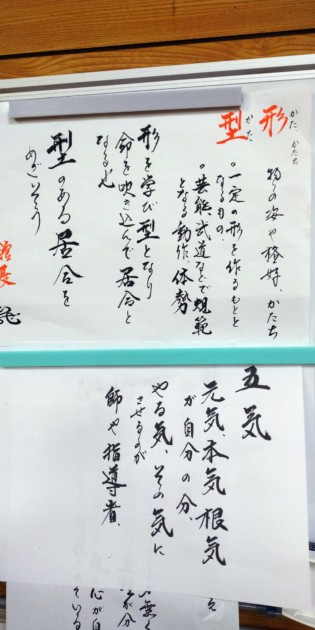 形 かた、かたち
物の姿や格好、かたち
型 かた
。一定の形を作るもとと
なるもの、
。芸能武道などで規範
となる動作、体勢
形を学び型となり
命を吹き込んで居合と
なる也
型のある居合を
めざそう
館長
五気
元気、本気、根気
が自分の分、
やる気、その気に
させるのが
師や指導者、